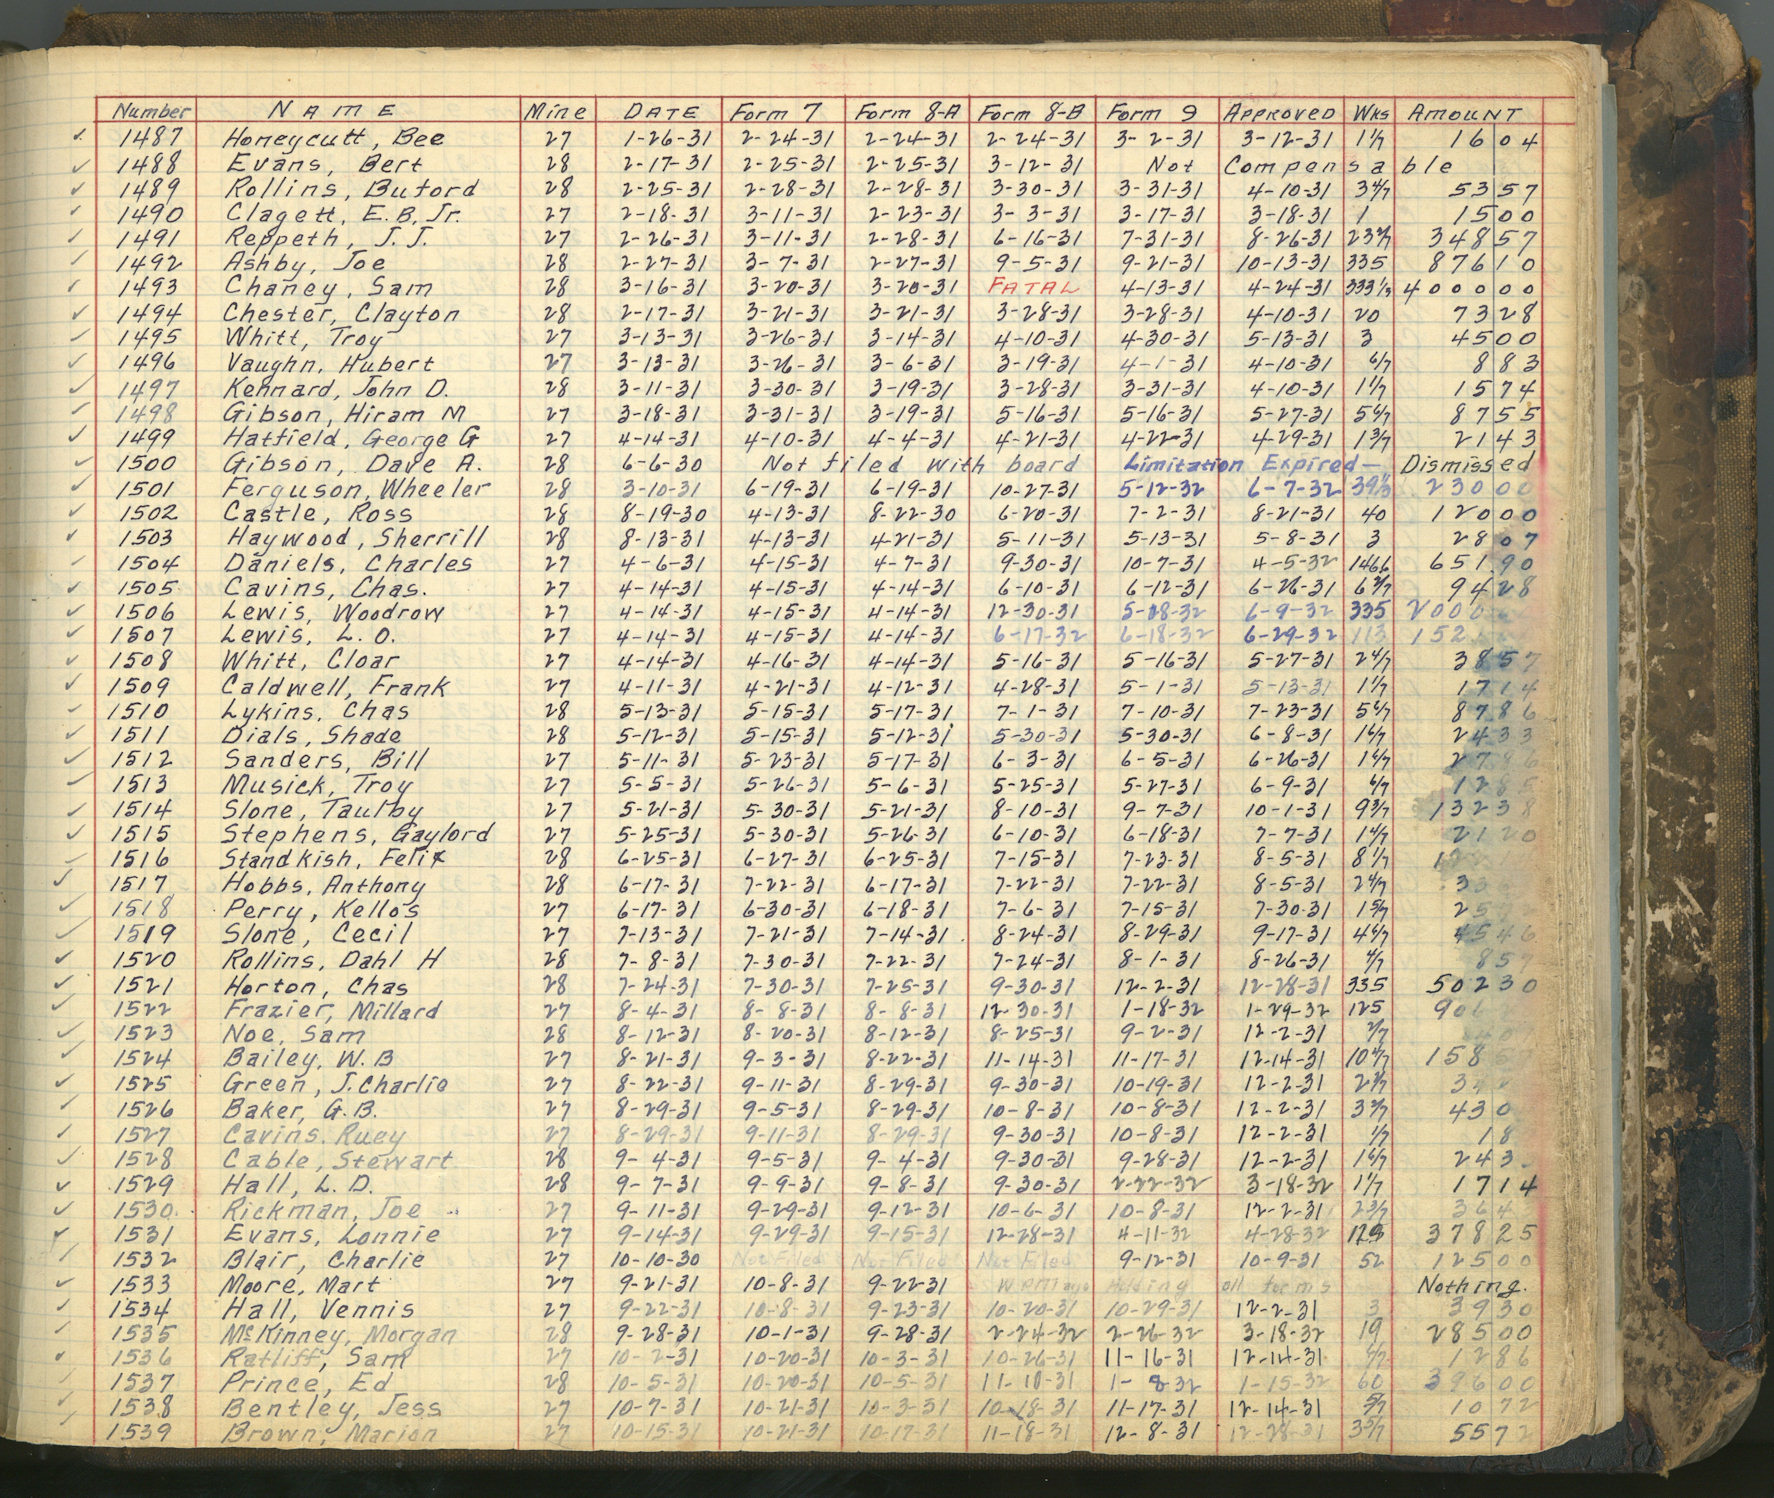 Number NAME Mine DATE Form 7 Form 8-A Form 8-B Form 9 APPROVED Wks AMOUNT
1487 Honeycutt, Bee 27 1-26-31 2-24-31 2-24-31 2-24-31 3-2-31 3-12-31 1 1/7 16 04
1488 Evans, Bert 28 2-17-31 2-25-31 2-25-31 3-12-31 Not Compensable
1489 Rollins, Buford 28 2-25-31 2-28-31 2-28-31 3-30-31 3-31-31 4-10-31 3 4/7 53 57
1490 Clagett, E.B, Jr. 27 2-18-31 3-11-31 2-23-31 3-3-31 3-17-31 3-18-31 1 15 00
1491 Reppeth, J.J. 27 2-26-31 3-11-31 2-28-31 6-16-31 7-31-31 8-26-31 348 57
1492 Ashby, Joe 28 2-27-31 3-7-31 2-27-31 9-5-31 9-21-31 10-13-31 335 876 10
1493 Chaney, Sam 28 3-16-31 3-20-31 3-20-31 FATAL 4-13-31 4-24-31 333 1/3 4000 00
1494 Chester, Clayton 28 2-17-31 3-21-31 3-21-31 3-28-31 3-28-31 4-10-31 20 73 28
1495 Whitt, Troy 27 3-13-31 3-26-31 3-14-31 4-10-31 4-30-31 5-13-31 3 45 00
1496 Vaughn, Hubert 27 3-13-31 3-26-31 3-6-31 3-19-31 4-1-31 4-10-31 6/7 8 83
1497 Kennard, John D. 28 3-11-31 3-30-31 3-19-31 3-28-31 3-31-31 4-10-31 1 1/7 15 74
1498 Gibson, Hiram M 27 3-18-31 3-31-31 3-19-31 5-16-31 5-16-31 5-27-31 5 6/7 87 55
1499 Hatfield, George G 27 4-14-31 4-10-31 4-4-31 4-21-31 4-22-31 4-29-31 1 3/7 21 43
1500 Gibson, Dave A. 28 6-6-30 Not filed with board Limitation Expired— Dismissed
1501 Ferguson, Wheeler 28 3-10-31 6-19-31 6-19-31 10-27-31 5-12-32 6-7-32 39 1/3 230 00
1502 Castle, Ross 28 8-19-30 4-13-31 8-22-30 6-20-31 7-2-31 8-21-31 40 120 00
1503 Haywood, Sherrill 28 8-13-31 4-13-31 4-21-31 5-11-31 5-13-31 5-8-31 3 28 07
1504 Daniels, Charles 27 4-6-31 4-15-31 4-7-31 9-30-31 10-7-31 4-5-32 651 90
1505 Cavins, Chas. 27 4-14-31 4-15-31 4-14-31 6-10-31 6-12-31 6-26-31 6 2/7 94 28
1506 Lewis, Woodrow 27 4-14-31 4-15-31 4-14-31 12-30-31 5-28-32 6-9-32 335
1507 Lewis, L.O. 27 4-14-31 4-15-31 4-14-31 6-17-32 6-18-32 6-29-32 113
1508 Whitt, Cloar 27 4-14-31 4-16-31 4-14-31 5-16-31 5-16-31 5-27-31 2 4/7 38 57
1509 Caldwell, Frank 27 4-11-31 4-21-31 4-12-31 4-28-31 5-1-31 5-13-31 1 1/7 17 14
1510 Lykins, Chas 28 5-13-31 5-15-31 5-17-31 7-1-31 7-10-31 7-23-31 5 6/7 87 86
1511 Dials, Shade 28 5-12-31 5-15-31 5-12-31 5-30-31 5-30-31 6-8-31 1 6/7 24 33
1512 Sanders, Bill 27 5-11-31 5-23-31 5-17-31 6-3-31 6-5-31 6-26-31 1 6/7 27 86
1513 Musick, Troy 27 5-5-31 5-26-31 5-6-31 5-25-31 5-27-31 6-9-31 6/7 12 85
1514 Slone, Taulby 27 5-21-31 5-30-31 5-21-31 8-10-31 9-7-31 10-1-31 9 3/7 132 38
1515 Stephens, Gaylord 27 5-25-31 5-30-31 5-26-31 6-10-31 6-18-31 7-7-31 1 4/7 21 20
1516 Standkish, Felix 28 6-25-31 6-27-31 6-25-31 7-15-31 7-23-31 8-5-31 8 1/7
1517 Hobbs, Anthony 28 6-17-31 7-22-31 6-17-31 7-22-31 7-22-31 8-5-31 2 4/7
1518 Perry, Kellos 27 6-17-31 6-30-31 6-18-31 7-6-31 7-15-31 7-30-31 1 5/7
1519 Slone, Cecil 27 7-13-31 7-21-31 7-14-31 8-24-31 8-29-31 9-17-31 4 6/7 45 46
1520 Rollins, Dahl H 28 7-8-31 7-30-31 7-22-31 7-24-31 8-1-31 8-26-31 4/7 8 57
1521 Horton, Chas 28 7-24-31 7-30-31 7-25-31 9-30-31 12-2-31 12-28-31 335 502 30
1522 Frazier, Millard 27 8-4-31 8-8-31 8-8-31 12-30-31 1-18-32 1-29-32 125
1523 Noe, Sam 28 8-12-31 8-20-31 8-12-31 8-25-31 9-2-31 12-2-31
1524 Bailey, W.B 27 8-21-31 9-3-31 8-22-31 11-14-31 11-17-31 12-14-31 10 4/7
1525 Green, J. Charlie 27 8-22-31 9-11-31 8-29-31 9-30-31 10-19-31 12-2-31
1526 Baker, G.B. 27 8-29-31 9-5-31 8-29-31 10-8-31 10-8-31 12-2-31
1527 Cavins, Ruey 27 8-29-31 9-11-31 8-29-31 9-30-31 10-8-31 12-2-31 1/7
1528 Cable, Stewart 28 9-4-31 9-5-31 9-4-31 9-30-31 9-28-31 12-2-31 1 6/7
1529 Hall, L.D. 28 9-7-31 9-9-31 9-8-31 9-30-31 2-22-32 3-18-32 1 1/7 17 14
1530 Rickman, Joe 27 9-11-31 9-29-31 9-12-31 10-6-31 10-8-31 12-2-31 2 3/7
1531 Evans, Lonnie 27 9-14-31 9-29-31 9-15-31 12-28-31 4-11-32 4-28-32 378 25
1532 Blair, Charlie 27 10-10-30 Not Filed Not Filed Not Filed 9-12-31 10-9-31 52 125 00
1533 Moore, Mart 27 9-21-31 10-8-31 9-22-31 Holding all forms Nothing.
1534 Hall, Vennis 27 9-22-31 10-8-31 9-23-31 10-20-31 10-29-31 12-2-31 3 39 30
1535 McKinney, Morgan 28 9-28-31 10-1-31 9-28-31 2-24-32 2-26-32 3-18-32 19 285 00
1536 Ratliff, Sam 27 10-2-31 10-20-31 10-3-31 10-26-31 11-16-31 12-14-31 6/7 12 86
1537 Prince, Ed 28 10-5-31 10-20-31 10-5-31 11-10-31 1-8-32 1-15-32 60 396 00
1538 Bentley, Jess 27 10-7-31 10-21-31 10-3-31 10-28-31 11-17-31 12-14-31 5/7 10 72
1539 Brown, Marion 27 10-15-31 10-21-31 10-17-31 11-18-31 12-8-31 12-28-31 3 5/7 55 72